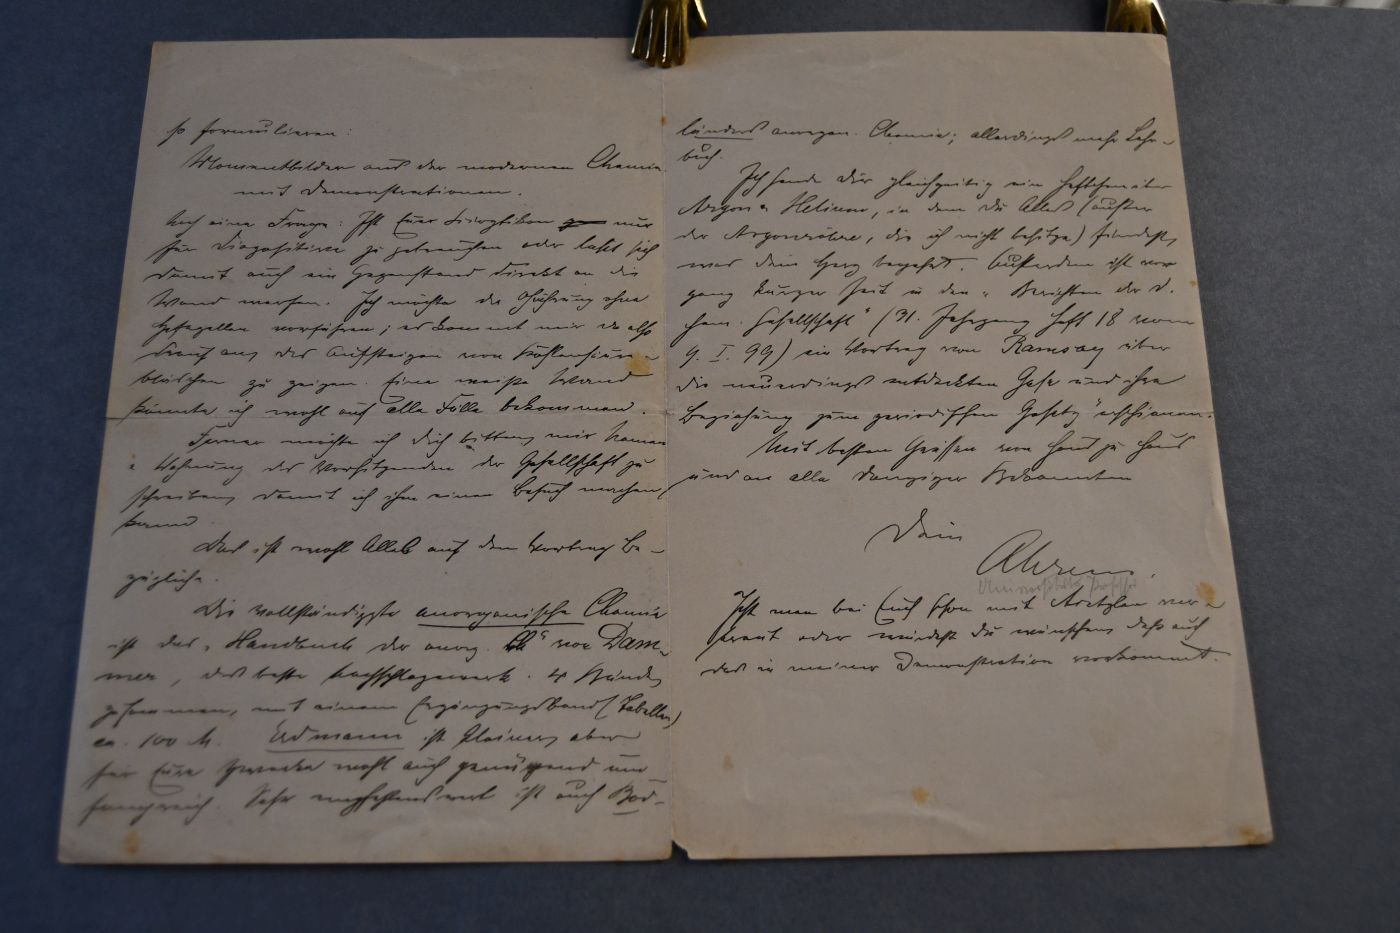 so formulieren:
Momentbilder aus der modernen Chemie
mit Demonstrationen.
Noch eine Frage: Ist Euer Scioptikon nur
für Diapositive zu gebrauchen oder läßt sich
damit auch ein Gegenstand direkt an die
Wand werfen. Ich möchte die ohne
vorführen; es kommt mir da also
darauf an, das Aufsteigen von Kohlensäure-
bläschen zu zeigen. Eine weiße Wand
könnte ich wohl auf alle Fälle bekommen.
Ferner möchte ich Dich bitten, mir Namen
u Wohnung des Vorsitzenden der Gesellschaft zu
schreiben, damit ich ihm einen Besuch machen
kann.
Das ist wohl Alles auf den Vortrag Be-
zügliche.
Die vollständigste anorganische Chemie
ist das „Handbuch der anorg. Ch." von Dam-
mer, das beste Nachschlagewerk. 4 Bände,
zusammen, mit einem Ergänzungsband (Tabellen)
ca. 100 M. Erdmann ist kleiner, aber
für Eure Zwecke wohl auch genügend um-
fangreich. Sehr empfehlenswert ist auch Bod-
länders anorgan. Chemie; allerdings mehr Lehr-
buch.
Ich sende Dir gleichzeitig ein Heftchen über
Argon u Helium, in dem Du Alles (außer
der Argonröhre, die ich nicht besitze) findest,
was Dein Herz begehrt. Außerdem ist vor
ganz kurzer Zeit in den „Berichten der d.
chem. Gesellschaft" (31. Jahrgang Heft 18 vom
9. I. 99) ein Vortrag von Ramsay über
die neuerdings entdeckten Gase und ihre
Beziehung zum periodischen Gesetz" erschienen.
Mit besten Grüßen von Haus zu Haus
und an alle Danziger Bekannten
Dein
Ahrens.
Universitäts Professor
Ist man bei Euch schon mit Acetylen ver-
traut oder würdest Du wünschen, daß auch
das in meiner Demonstration vorkommt.